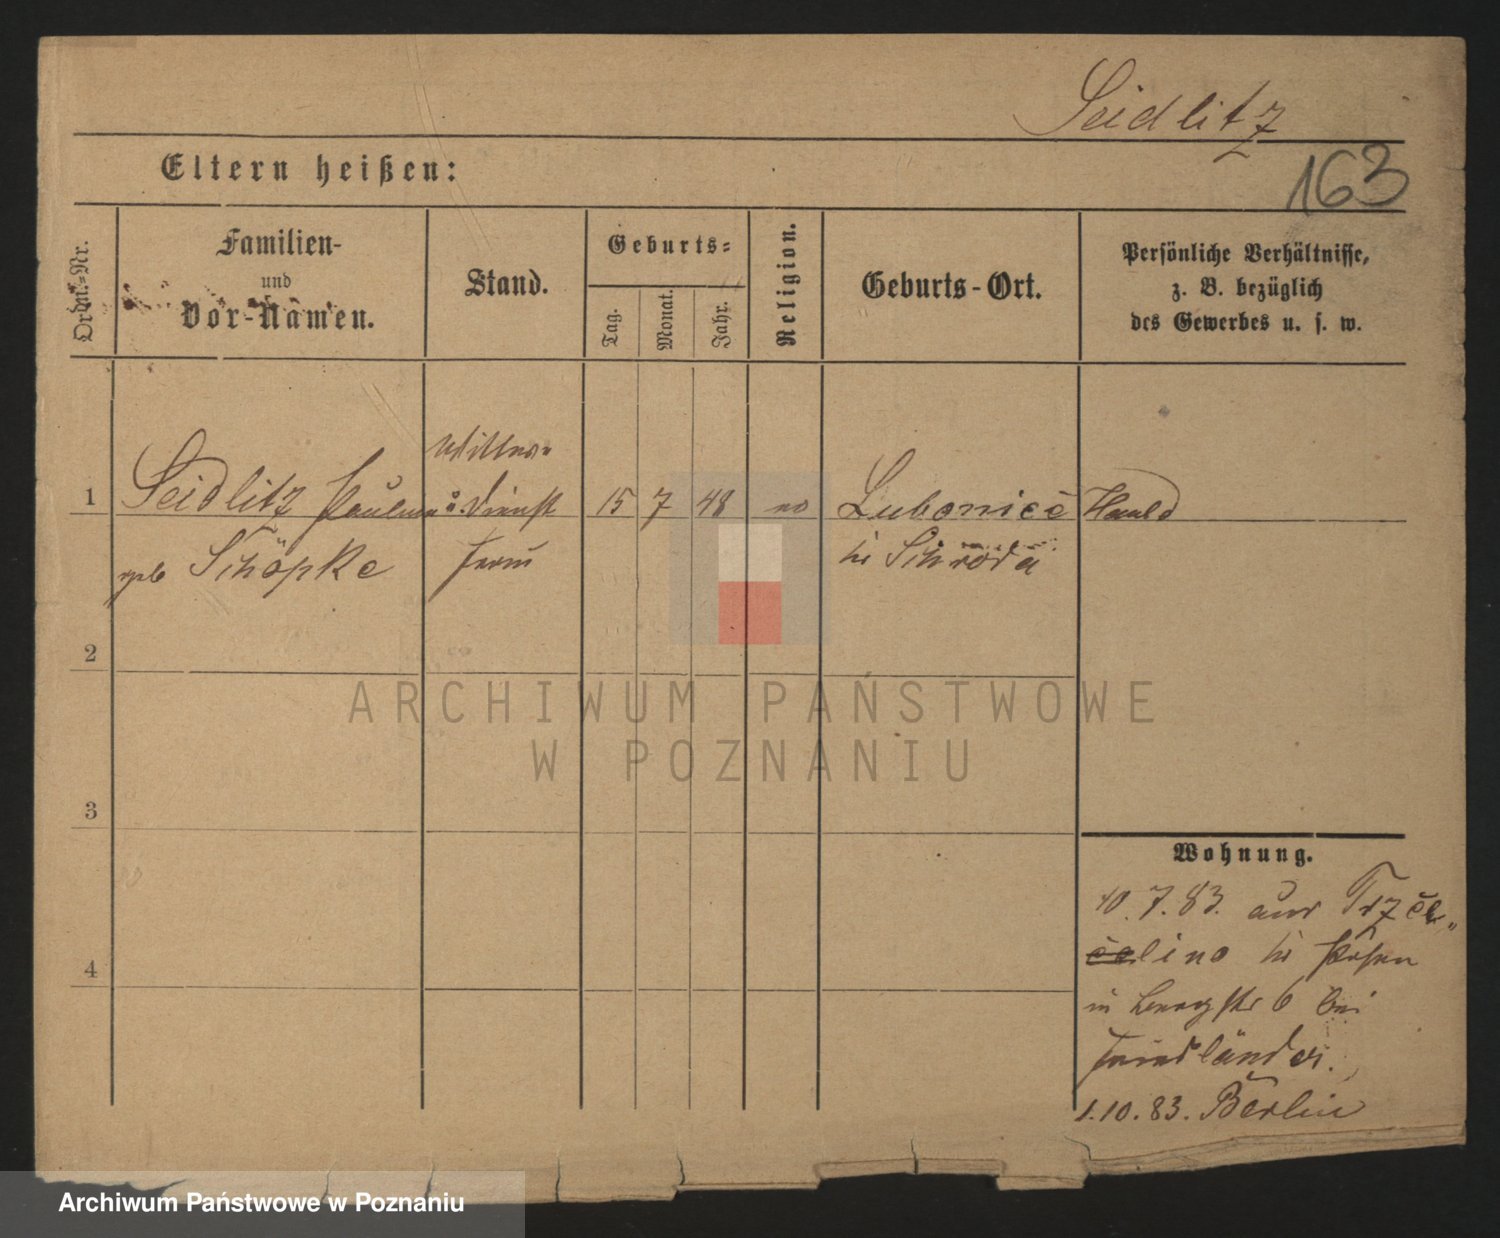 Seidlitz
163
Eltern heißen:
Ordn.-Nr.
Familien-
und
Vor-Namen.
Stand.
Geburts-
Tag.
Monat.
Jahr.
Religion.
Geburts-Ort.
Persönliche Verhältnisse,
z. B. bezüglich
des Gewerbes u. s. w.
1
Seidlitz
geb Schöpke
15 7 48
2
3
4
Wohnung.
10.7.83. aus
lino Kr Posen
6 bei
Friedländer.
1.10.83. Berlin
ARCHIWUM PAŃSTWOWE
W POZNANIU
Archiwum Państwowe w Poznaniu